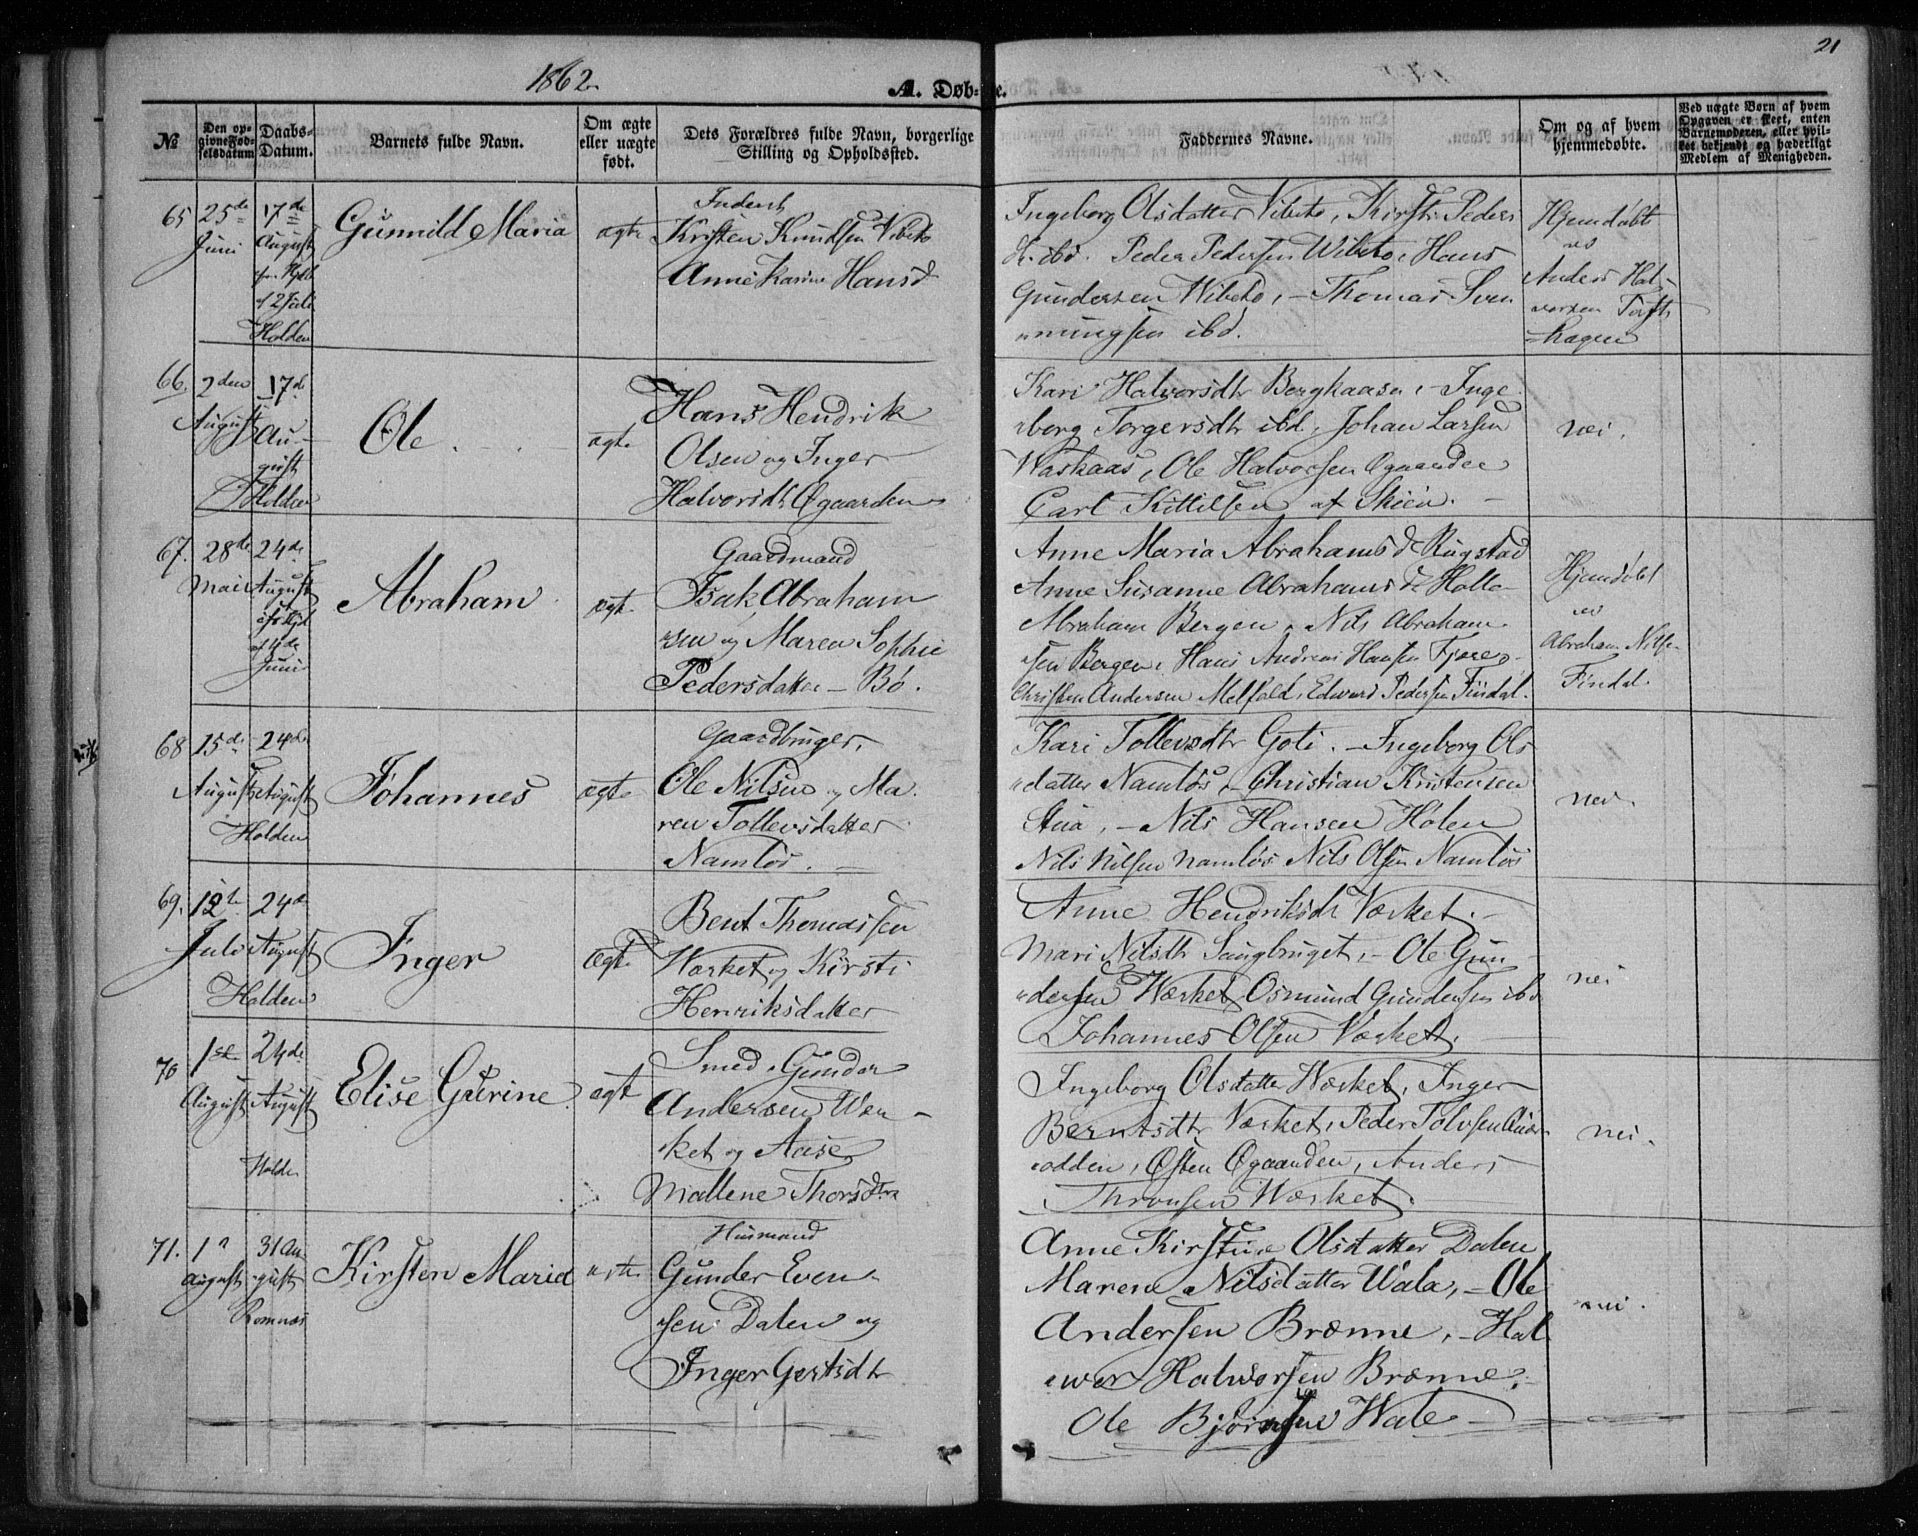 1862
A. Døbte.
21
№
Den opgivne Fødselsdatum
Daabs-Datum.
Barnets fulde Navn.
Om ægte eller uægte født.
Dets Forældres fulde Navn, borgerlige Stilling og Opholdssted.
Faddernes Navne.
Om og af hvem hjemmedøbte.
Ved uægte Børn af hvem Opgaven er skeet, enten Barnemoderen, eller hvilket bekjendt og hæderligt Medlem af Menigheden.
65
25de
Juni
17de
August
12 Juli
Holden
Gunnild Maria
ægte
Inderst
Kristen Knudsen Vibeto
Anne Karine Hansd
Ingeborg Olsdatter Vibeto, Kirsti Peders
d. ibd. Peder Pedersen Wibeto, Hans
Gundersen Wibeto, – Thomas Sven
mungsen ibd.
Hjemdøbt
Anders Hal
vorsen Toft
hagen
66.
2den
August
17de
Au-
gust
Holden
Ole
ægte
Hans Hendrik
Olsen og Inger
Halvorsdtr Øgaarden
Kari Halvorsdtr Berghaasen, – Inge
borg Torgersdtr ibd, Johan Larsen
Waskaas, Ole Halvorsen Øgaarden
Carl Kittilsen af Skien. –
nei.
67.
28de
Mai
24de
August
11de
Juni
Abraham
ægte
Gaardmand
Isak Abraham
sen og Maren Sophie
Pedersdatter – Bö.
Anne Maria Abrahamsd Rugstad
Anne Susanne Abrahamsd Holte
Abraham Bergen, Nils Abraham
sen Bergen, Hans Andreas Hansen Fjære
Christen Andersen Melfald, Edvard Pedersen Findal.
Hjemdøbt
Abraham Nilsen
Findal.
68
15de
August
24de
August
Holden
Johannes
ægte
Gaardbruger,
Ole Nilsen og Ma
ren Tollevsdatter
Namløs. –
Kari Tollevsdtr Goti. – Ingeborg Ols
datter Namløs, Christian Kristensen
Stua, – Nils Hansen Holen
Nils Nilsen Namløs Nils Olsen Namløs
nei.
69.
12te
Juli
24de
August
Holden
Inger
Ægte
Bent Thomassen
Værket og Kirsti
Henriksdatter
Anne Hendriksdtr Værket. –
Mari Nilsdtr Saugbruget, – Ole Gun
dersen Værket, Osmund Gundersen ibd
Johannes Olsen Værket.
nei
70
1ste
August
24de
August
Holden
Elise Gurine
ægte
Smed, Gunder
Andersen Væ
rket og Aase
Mallene Thorsdtr
Ingeborg Olsdatter Værket, Inger
Berntsdtr Værket, Peder Tolvsen
odden, Østen Øgaarden, Anders
Thronsen Værket.
nei.
71.
1
August
31 Au
gust
Romnæs
Kirsten Maria
ægte
Husmand
Gunder Even
sen Dalen og
Inger Gertsdtr
Anne Kirstine Olsdatter Dalen
Maren Nilsdatter Wala, – Ole
Andersen Brænne, – Hal
wor Halworsen Brænne,
Ole Bjørnsen Wale –
nei.